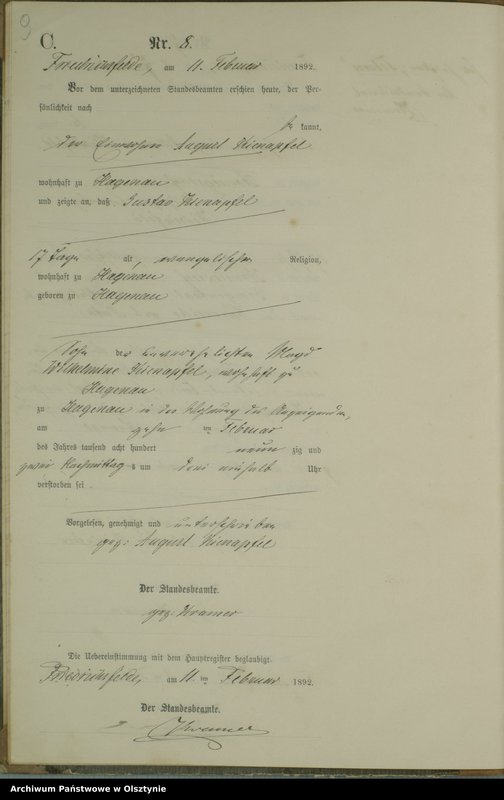 9
C.
Nr. 8.
Friedrichsfelde, am 11. Februar 1892.
Vor dem unterzeichneten Standesbeamten erschien heute, der Per-
sönlichkeit nach
be kannt,
der Einwohner August Kienapfel
wohnhaft zu Hagenau
und zeigte an, daß Gustav Kienapfel
17 Tage alt, evangelischer Religion,
wohnhaft zu Hagenau
geboren zu Hagenau
Sohn der unverehelichten Magd
Wilhelmine Kienapfel, wohnhaft zu
Hagenau
zu Hagenau in der Wohnung des Anzeigenden,
am zehn ten Februar
des Jahres tausend acht hundert neun zig und
zwei Nachmittag s um drei einhalb Uhr
verstorben sei
Vorgelesen, genehmigt und unterschrieben
gez: August Kienapfel
Der Standesbeamte.
gez: Kramer
Die Uebereinstimmung mit dem Hauptregister beglaubigt.
Friedrichsfelde, am 11 ten Februar 1892.
Der Standesbeamte.
Kramer
Archiwum Państwowe w Olsztynie